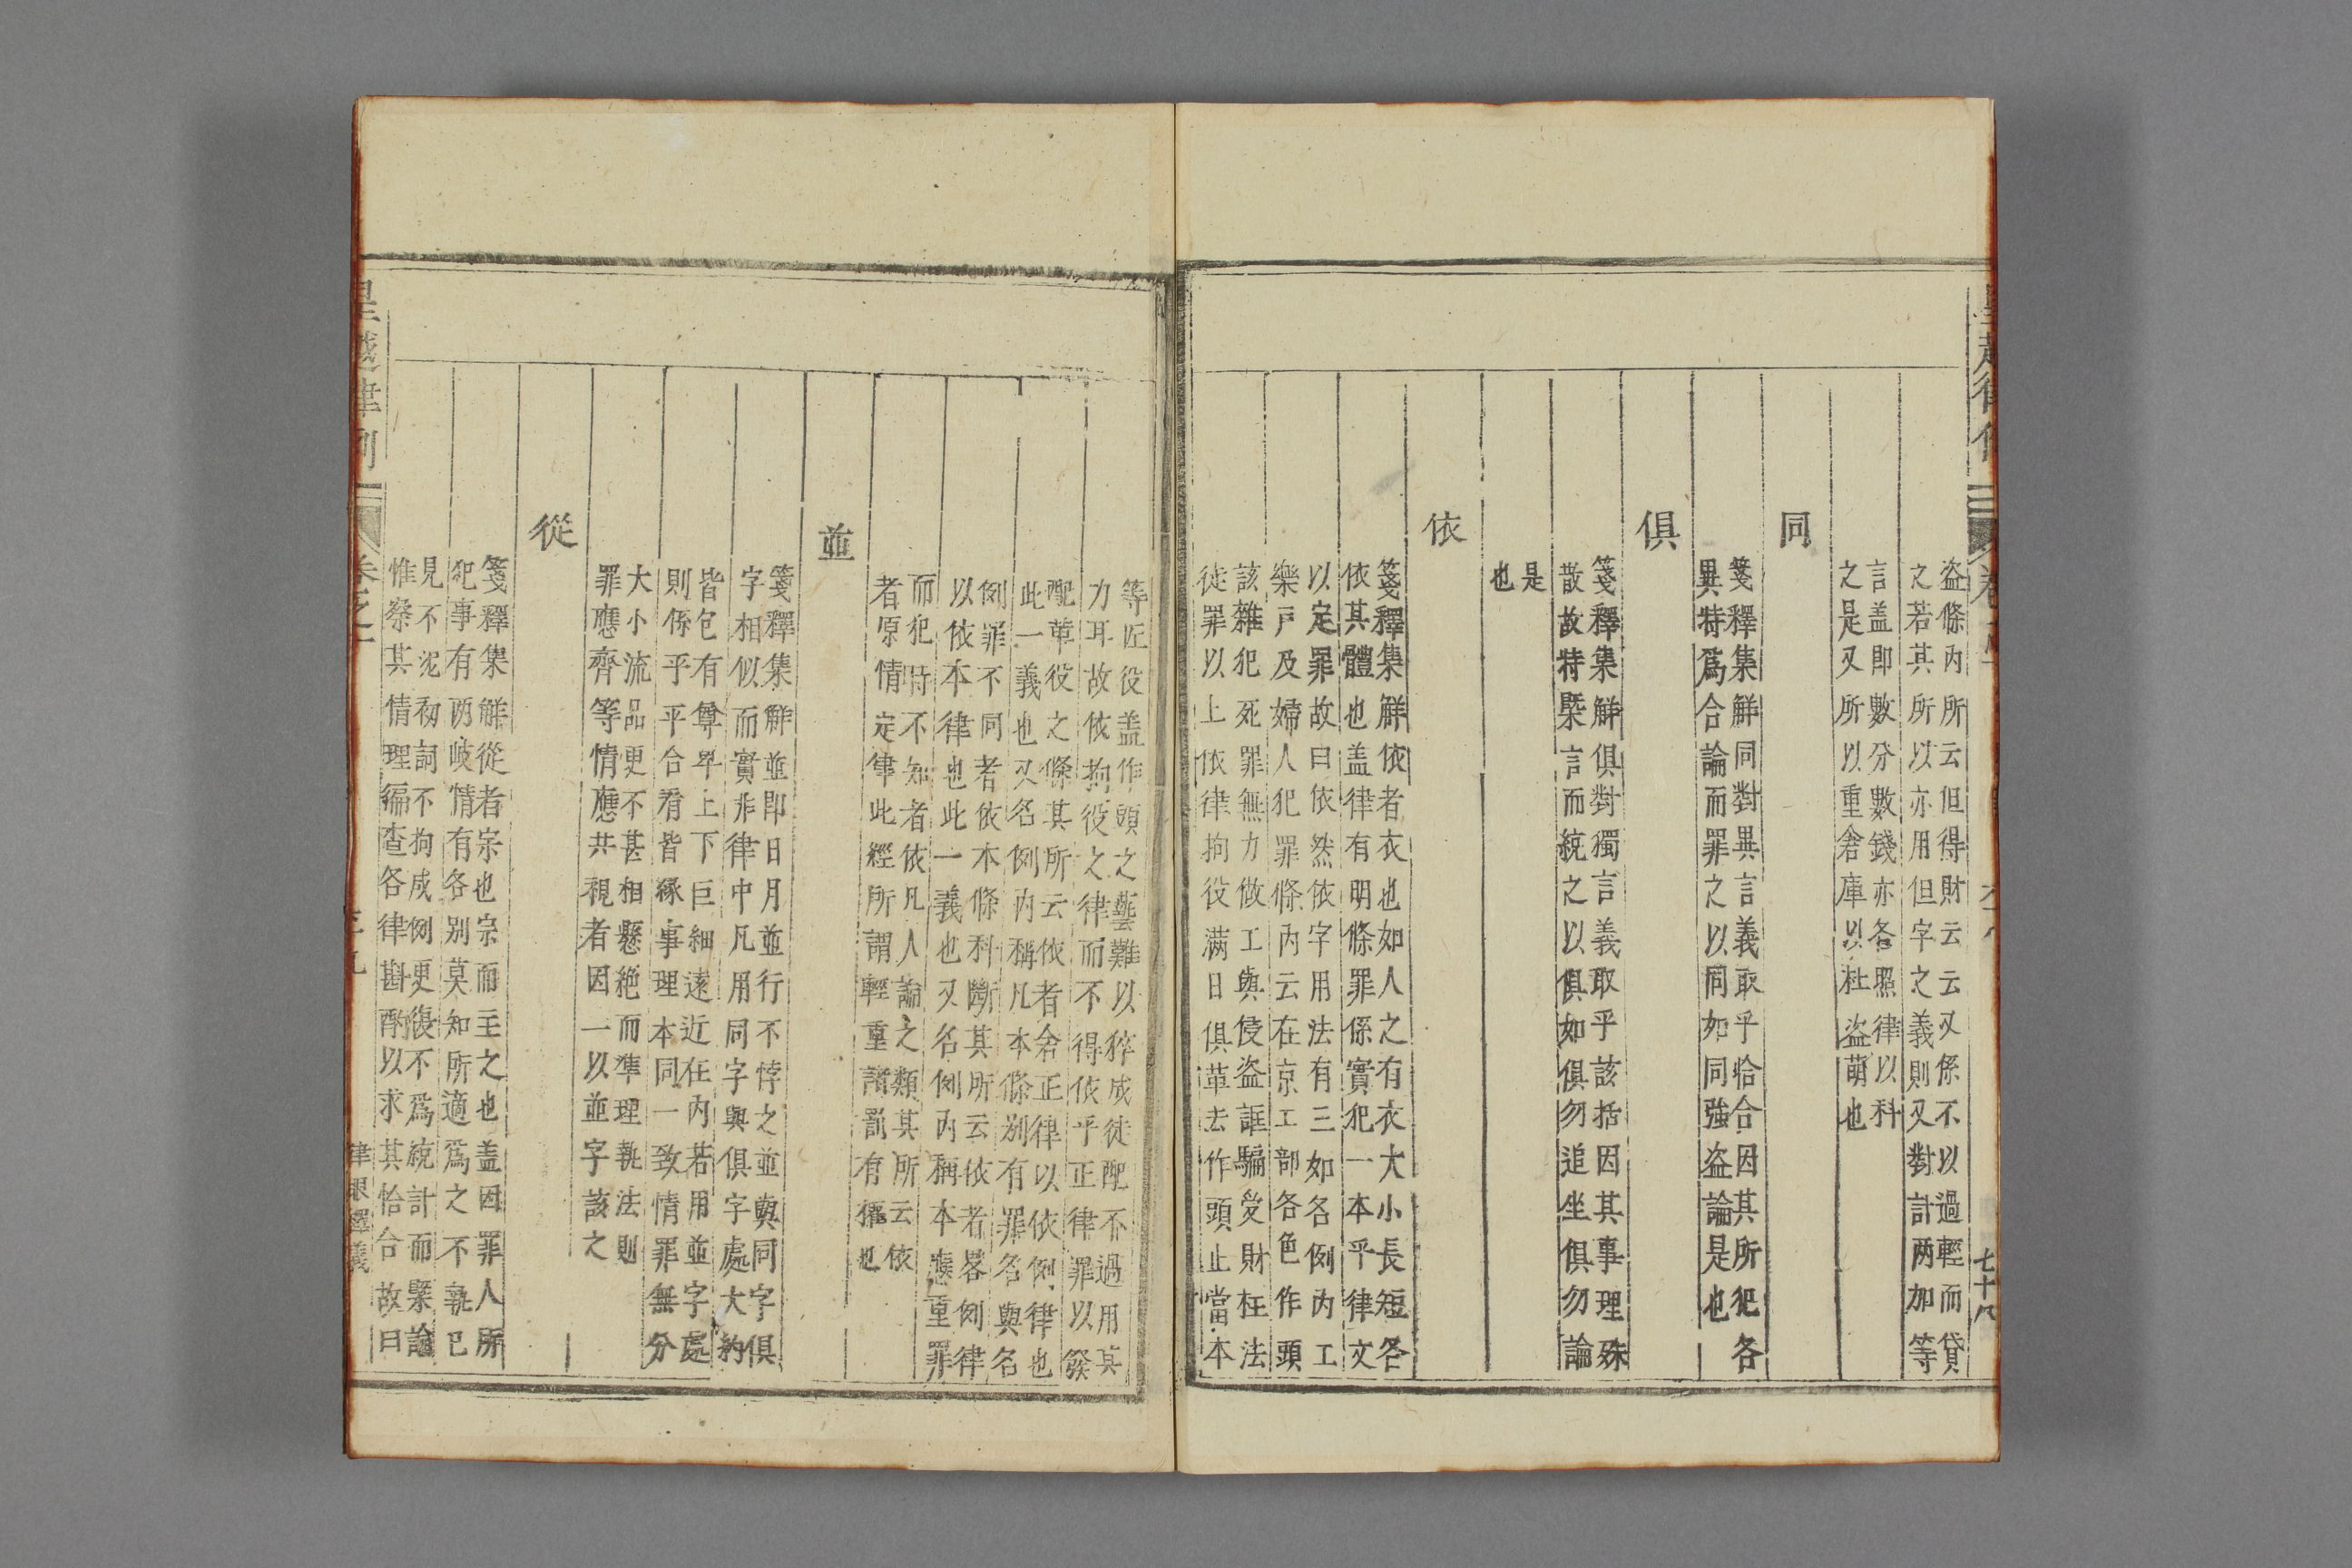 七十八
盗條內所云但得財云云又係不以過輕而貸
之若其所以亦用但字之義則又對計两加等
言盖即數分數錢亦各照律以科
之是又所以重倉庫以杜盗萌也
同
箋釋集解同對異言義取乎恰合因其所犯各
異特爲合論而罪之以同如同強盗論是也
俱
箋釋集解俱對獨言義取乎該括因其事理殊
散故特槩言而統之以俱如俱勿追坐俱勿論
是
也
依
箋釋集解依者衣也如人之有衣大小長短各
依其體也盖律有明條罪係實犯一本乎律文
以定罪故曰依然依字用法有三如各例內工
樂戶及婦人犯罪條內云在京工部各色作頭
該雜犯死罪無力做工與侵盗誆騙受財枉法
徒罪以上依律拘役滿日俱革去作頭止當本
等匠役盖作頭之藝難以猝成徒配不過用其
力耳故依拘役之律而不得依乎正律罪以發
配革役之條其所云依者舍正律以依例律也
此一義也又名例內稱凡本條别有罪名與名
例罪不同者依本條科斷其所云依者畧例律
以依本律也此一義也又名例內稱本應重罪
而犯時不知者依凡人論之類其所云依
者原情定律此經所謂輕重諸罰有權也
並
箋釋集解並即日月並行不悖之並與同字俱
字相似而實非律中凡用同字與俱字處大約
皆包有尊卑上下巨細遠近在內若用並字處
則係乎平合看皆緣事理本同一致情罪無分
大小流品更不甚相懸絶而準理執法則
罪應齊等情應共視者因一以並字該之
從
箋釋集解從者宗也宗而主之也盖因罪人所
犯事有两岐情有各别莫知所適爲之不執已
見不泥初詞不拘成例更復不爲統計而槩論
惟察其情理徧查各律斟酌以求其恰合故曰
皇越律例 卷之一 律眼釋義